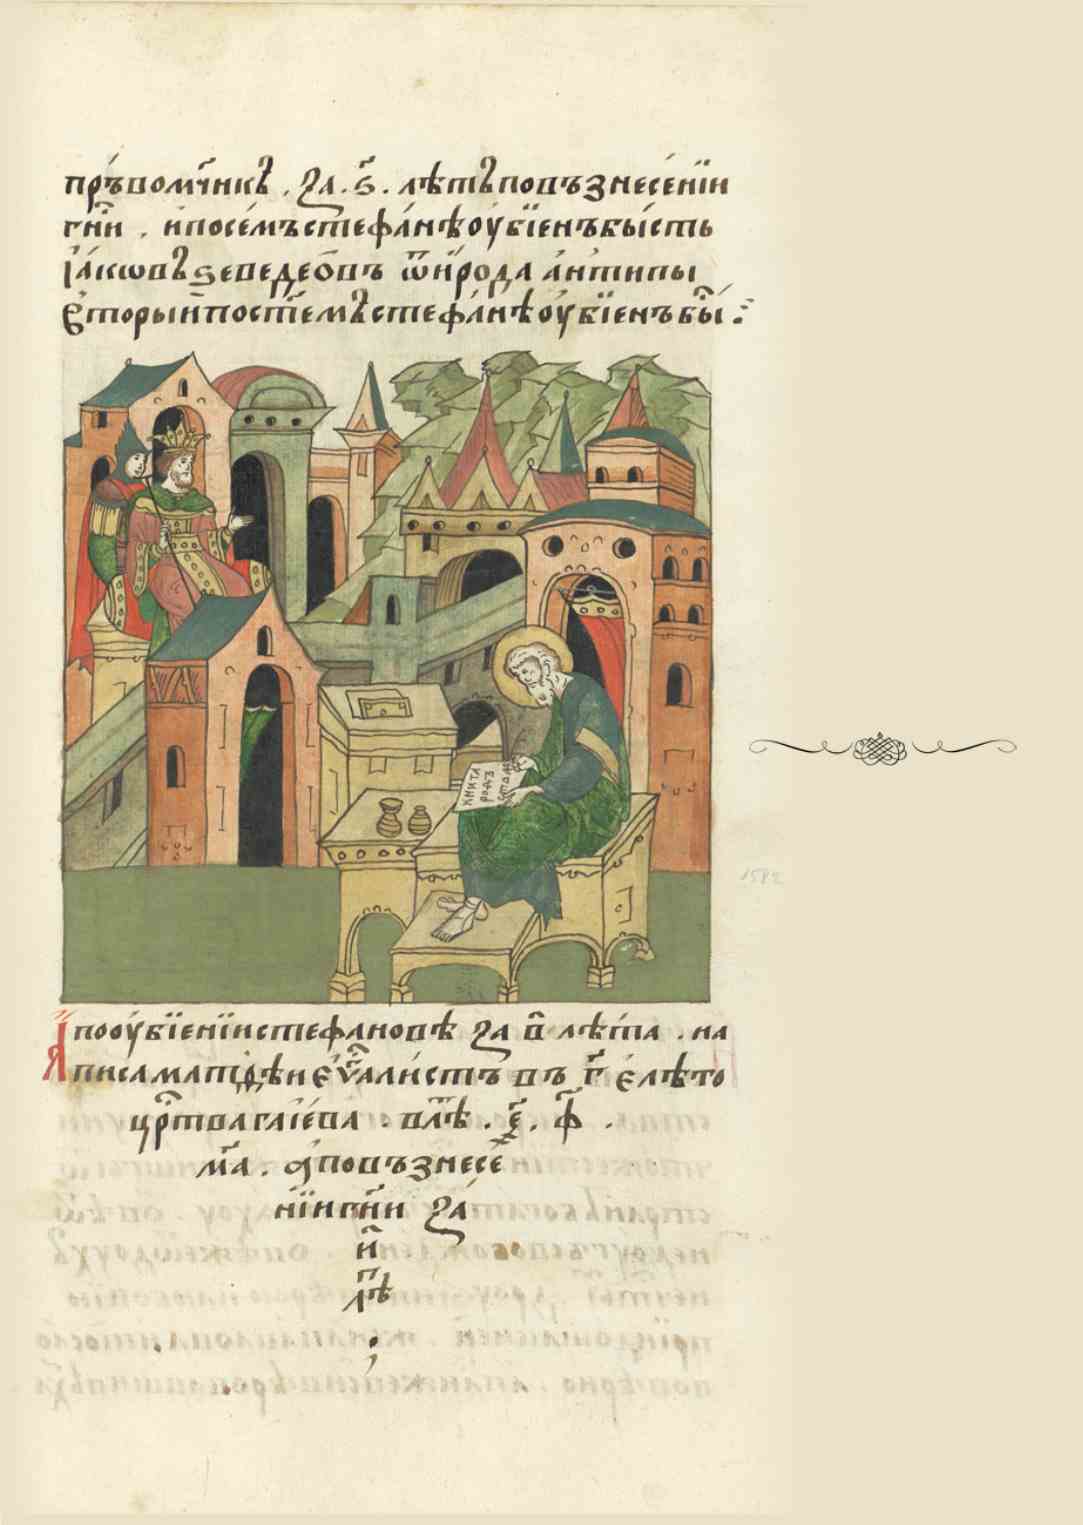 пръвом҃чникъ . за . ѕ҃ . лѣтъ повъзнесенїи
гн҃и . и посемъ стефанѣ оубїенъ бысть
їаковъ зеведеовъ ѿ ирода антипы
вторыи постїемъ стефанѣ оубїенъ бы :
книга
родъ
И пооубїенїи стефановѣ за в҃ лѣта . на
писа матѳѣи еѵ҃алистъ въ г҃ е лѣто
цр҃тва гаїева . влѣ . ҂е҃ . ф҃
м҃а . а повъзнесе
нїи гн҃и за
и҃
лѣ
1582